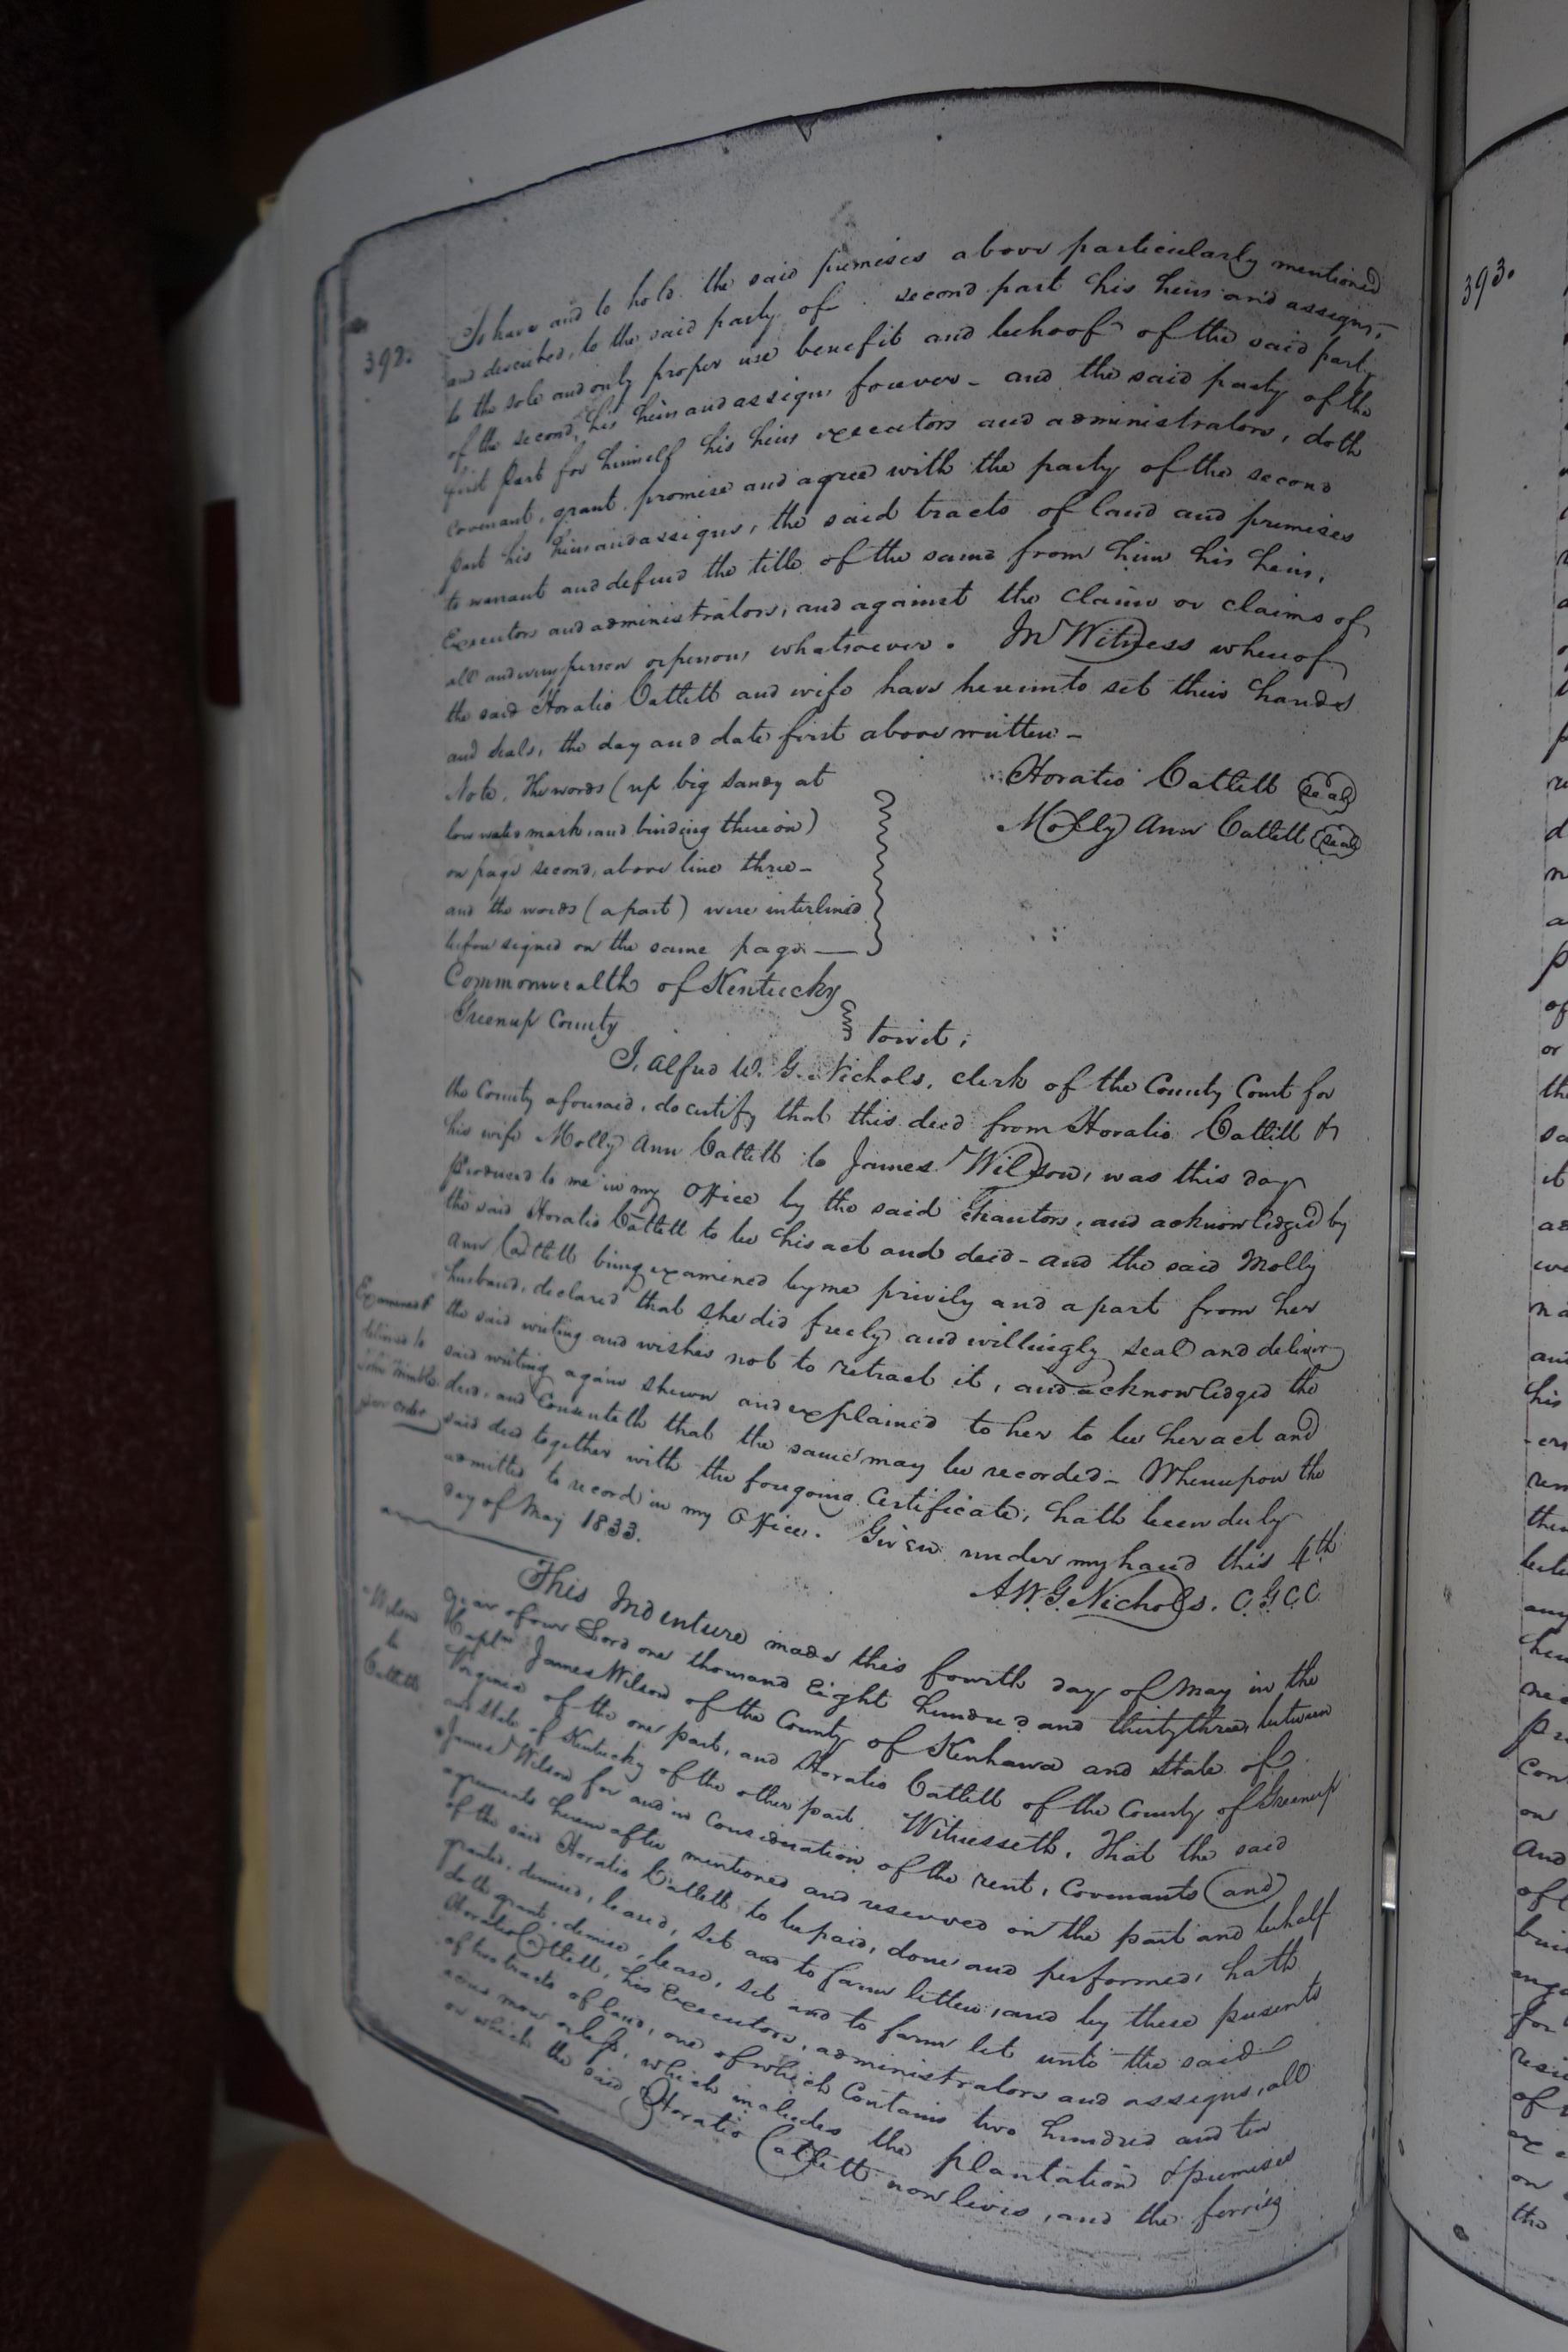 392.
To have and to hold the said premises above particularly mentioned
and described, to the said party of second part his heirs and assigns,
to the sole and only proper use benefit and behoof of the said party
of the second, his heirs and assigns forever - and the said party of the
first part for himself his heirs executors and administrators, doth
covenant, grant, promise and agree with the party of the second
part his heirs and assigns, the said tracts of land and premises
to warrant and defend the title of the same from him his heirs,
Executors and administrators, and against the claim or claims of
all and every person or persons whatsoever. In Witness whereof
the said Horatio Catlett and wife have hereunto set their hands
and seals, the day and date first above written -
Horatio Catlett (seal)
Molly Ann Catlett (seal)
Note. The words (up big Sandy at
low water mark, and binding thereon)
on page second, above line three -
and the words (a part) were interlined
before signed on the same page —
Commonwealth of Kentucky
Greenup County
towit;
I, Alfred W. G. Nichols, clerk of the County Court for
the County aforesaid, do certify that this deed from Horatio Catlett &
his wife Molly Ann Catlett to James Wilson, was this day
Produced to me in my Office by the said Grantors, and acknowledged by
the said Horatio Catlett to be his act and deed - and the said Molly
Ann Catlett being examined by me privily and apart from her
husband, declared that she did freely and willingly seal and deliver
the said writing and wishes not to retract it, and acknowledged the
said writing again shewn and explained to her to be her act and
deed, and Consenteth that the same may be recorded - Whereupon the
said deed together with the foregoing Certificate, hath been duly
admitted to record in my Office. Given under my hand this 4th
day of May 1833.
A W. G. Nichols. C.G.C.C
Examined &
delivered to
John
per order
Wilson
to
Catlett
This Indenture made this fourth day of May in the
year of our Lord one thousand Eight hundred and thirty three, between
Captn James Wilson of the County of Kenhawa and State of
Virginia of the one part, and Horatio Catlett of the County of Greenup
and State of Kentucky of the other part. Witnesseth, That the said
James Wilson for and in Consideration of the rent, Covenants (and)
agreements herein after mentioned and reserved on the part and behalf
of the said Horatio Catlett to be paid, done and performed, hath
granted, demised, leased, set and to farm letten, and by these presents
doth grant, demise, lease, set and to farm let unto the said
Horatio Catlett, his Executors, administrators and assigns, all
of two tracts of land, one of which Contains two hundred and ten
acres more or less, which includes the plantation & premises
on which the said Horatio Catlett now lives, and the ferries
393.